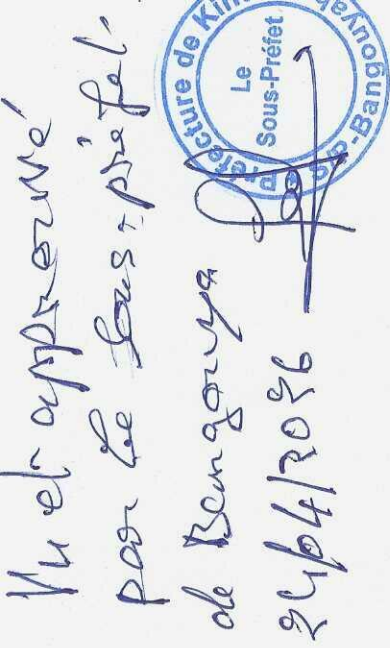 Vu et approuvé
par le Sous-préfet
de Bangouya
24/04/2026
Préfecture de Kin
Le
Sous-Préfet
SP-Bangouya